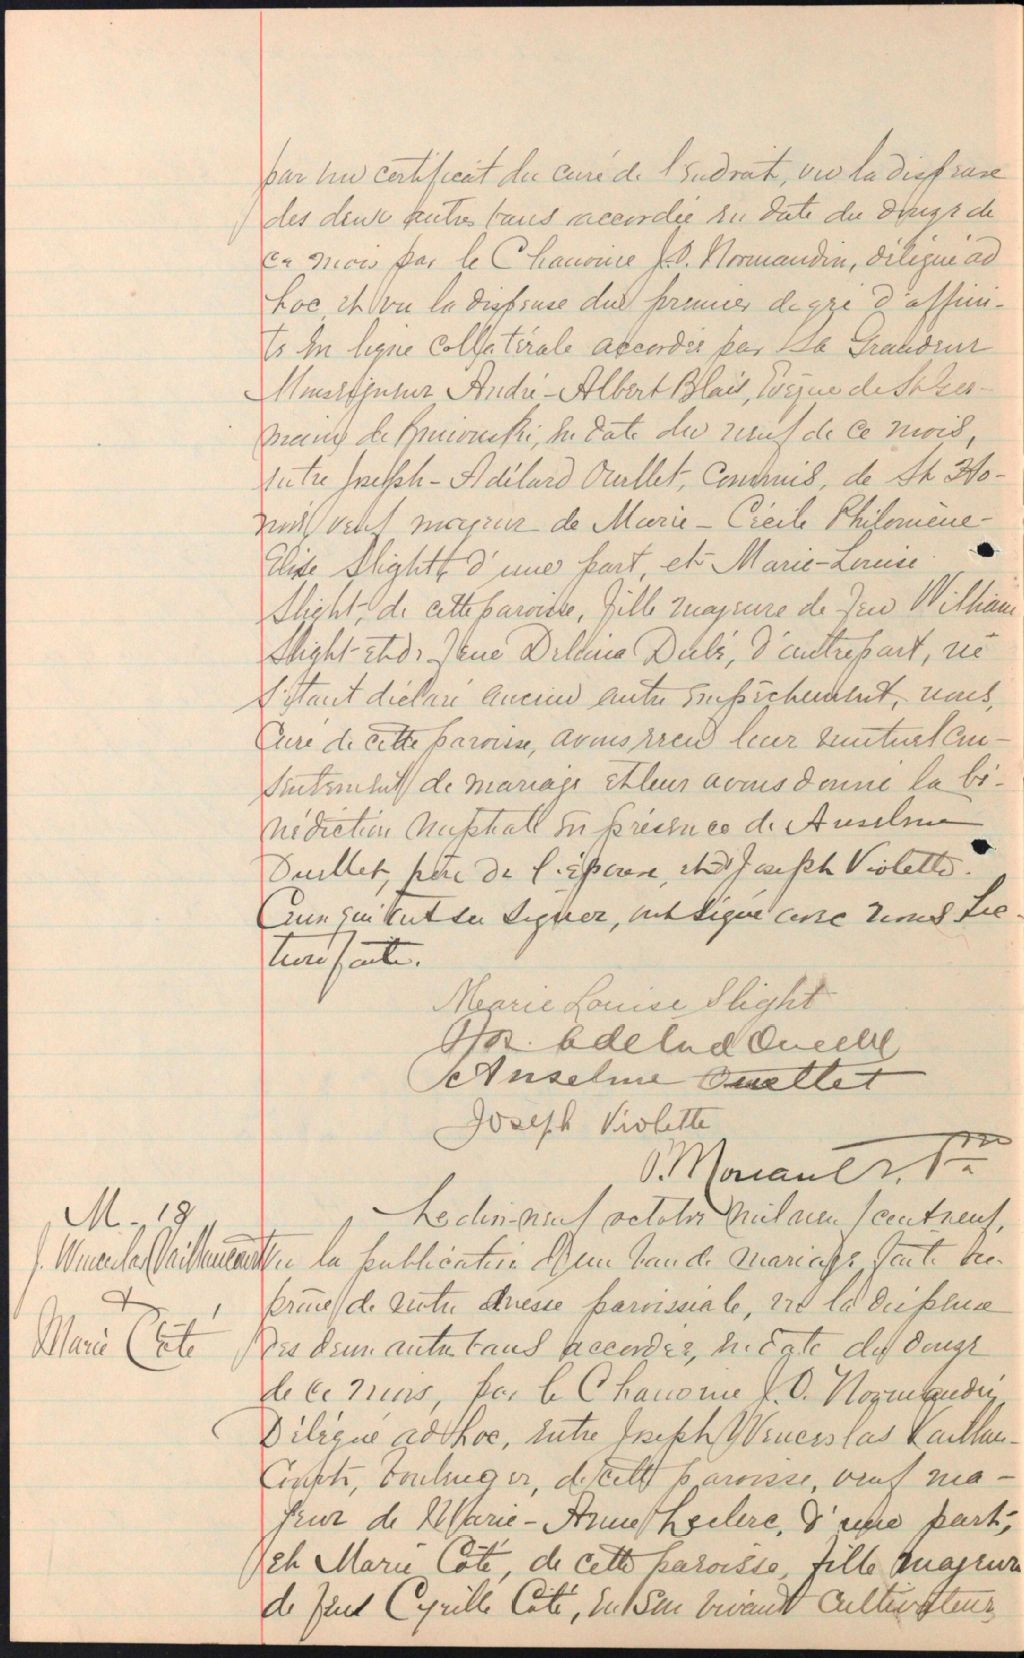 par un certificat du curé de l'endroit, vu la dispense
des deux autres bans accordée en date du douze de
ce mois par le Chanoine J.O. Normandin, délégué ad
hoc, et vu la dispense du premier degré d'affini-
té en ligne collatérale accordée par Sa Grandeur
Monseigneur André-Albert Blais, Evêque de St Ger-
main de Rimouski, en date du neuf de ce mois,
entre Joseph-Adélard Ouellet, commis, de St Ho-
noré, veuf majeur de Marie-Cécile Philomène-
Elise Slight, d'une part, et Marie-Louise
Slight, de cette paroisse, fille majeure de feu William
Slight et de feue Delvina Dubé, d'autre part, ne
s'étant déclaré aucun autre empêchement, nous,
Curé de cette paroisse, avons reçu leur mutuel con-
sentement de mariage et leur avons donné la bé-
nédiction nuptiale en présence de Anselme
Ouellet, père de l'époux, et de Joseph Violette.
Ceux qui ont su signer, ont signé avec nous. Lec-
ture faite.
Marie Louise Slight
Jos. Adelard Ouellet
Anselme Ouellet
Joseph Violette
P. Morault, Ptre
M-18
J. Wenceslas Vaillancourt
&
Marie Côté
Le dix-neuf octobre mil neuf cent neuf,
Vu la publication d'un ban de mariage faite au
prône de notre messe paroissiale, vu la dispense
des deux autres bans accordée, en date du douze
de ce mois, par le Chanoine J.O. Normandin,
Délégué ad hoc, entre Joseph Wenceslas Vaillan-
court, boulanger, de cette paroisse, veuf ma-
jeur de Marie-Anne Leclerc, d'une part,
et Marie Côté, de cette paroisse, fille majeure
de feu Cyrille Côté, en son vivant cultivateur,